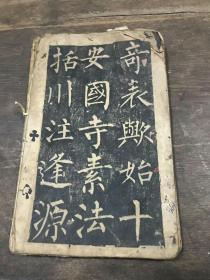 奇表歟始十
安國寺素法
括川注逢源